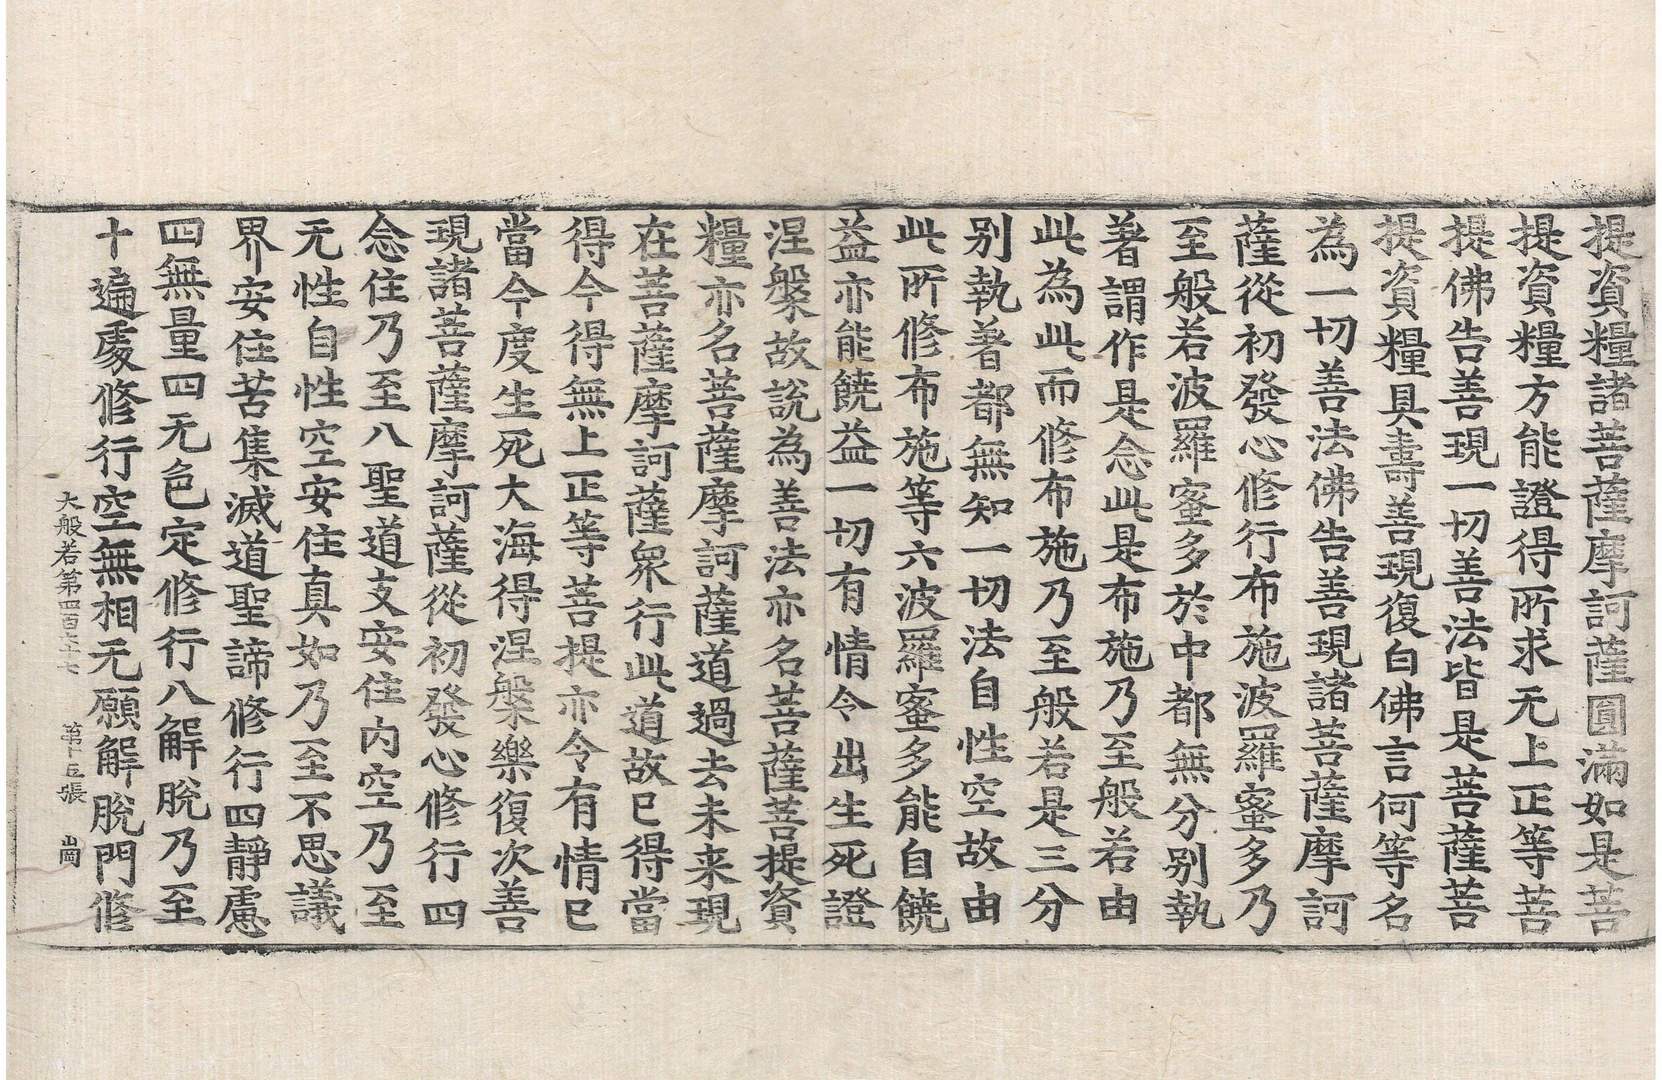 提資糧諸菩薩摩訶薩圓滿如是菩
提資糧方能證得所求无上正等菩
提佛告善現一切善法皆是菩薩菩
提資糧具壽善現復白佛言何等名
為一切善法佛告善現諸菩薩摩訶
薩從初發心修行布施波羅蜜多乃
至般若波羅蜜多於中都無分别執
著謂作是念此是布施乃至般若由
此為此而修布施乃至般若是三分
别執著都無知一切法自性空故由
此所修布施等六波羅蜜多能自饒
益亦能饒益一切有情令出生死證
涅槃故說為善法亦名菩薩菩提資
糧亦名菩薩摩訶薩道過去未来現
在菩薩摩訶薩衆行此道故已得當
得今得無上正等菩提亦令有情已
當今度生死大海得涅槃樂復次善
現諸菩薩摩訶薩從初發心修行四
念住乃至八聖道支安住內空乃至
无性自性空安住真如乃至不思議
界安住苦集滅道聖諦修行四靜慮
四無量四无色定修行八解脫乃至
十遍處修行空無相无願解脫門修
大般若第四百六十七 第十五張 出岡